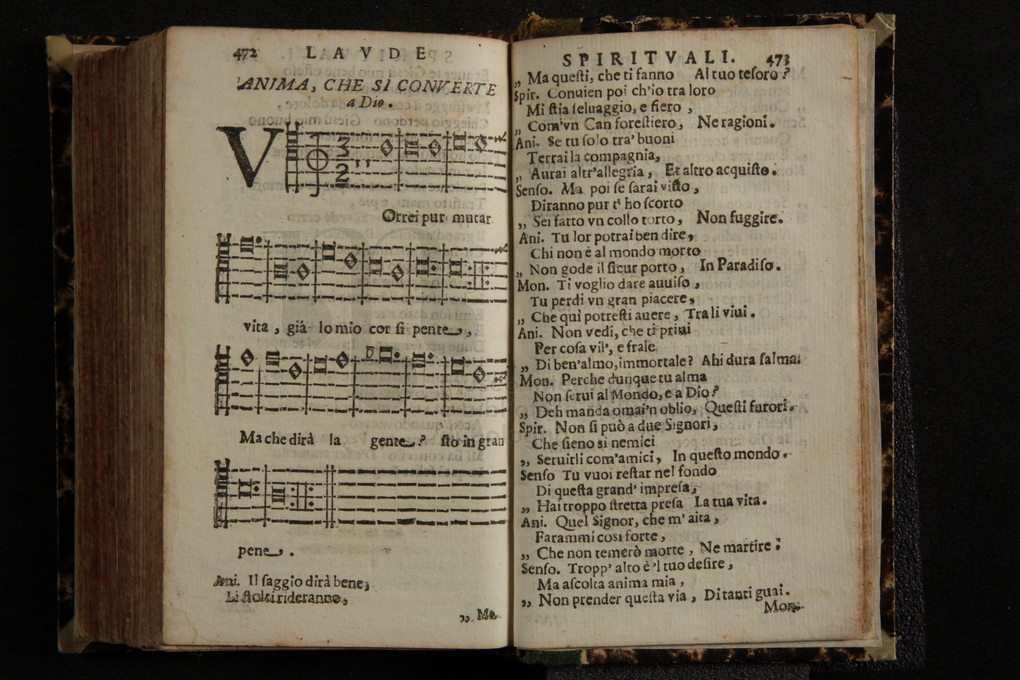 472 LAVDE
ANIMA, CHE SI CONVERTE
a Dio.
V
3
2
Orrei pur mutar
vita, già lo mio cor si pente,
Ma che dirà la gente? sto in gran
pene.
Ani. Il saggio dirà bene,
Li stolti rideranno,
„ Ma
SPIRITVALI. 473
„ Ma questi, che ti fanno Al tuo tesoro?
Spir. Conuien poi ch'io tra loro
Mi stia seluaggio, e fiero,
„ Com'vn Can forestiero, Ne ragioni.
Ani. Se tu solo tra' buoni
Terrai la compagnia,
„ Aurai altr'allegria, Et altro acquisto.
Senso. Ma poi se sarai visto,
Diranno pur t' ho scorto
„ Sei fatto vn collo torto, Non fuggire.
Ani. Tu lor potrai ben dire,
Chi non è al mondo morto
„ Non gode il sicur porto, In Paradiso.
Mon. Ti voglio dare auuiso,
Tu perdi vn gran piacere,
„ Che quì potresti auere, Tra li viui.
Ani. Non vedi, che ti priui
Per cosa vil', e frale
„ Di ben'almo, immortale? Ahi dura salma!
Mon. Perche dunque tu alma
Non serui al Mondo, e a Dio?
„ Deh manda omai'n oblio, Questi furori.
Spir. Non si può a due Signori,
Che sieno si nemici
„ Seruirli com'amici, In questo mondo.
Senso Tu vuoi restar nel fondo
Di questa grand' impresa,
„ Hai troppo stretta presa La tua vita.
Ani. Quel Signor, che m' aita,
Farammi così forte,
„ Che non temerò morte, Ne martire:
Senso. Tropp' alto è 'l tuo desire,
Ma ascolta anima mia,
„ Non prender questa via, Di tanti guai.
Mon.